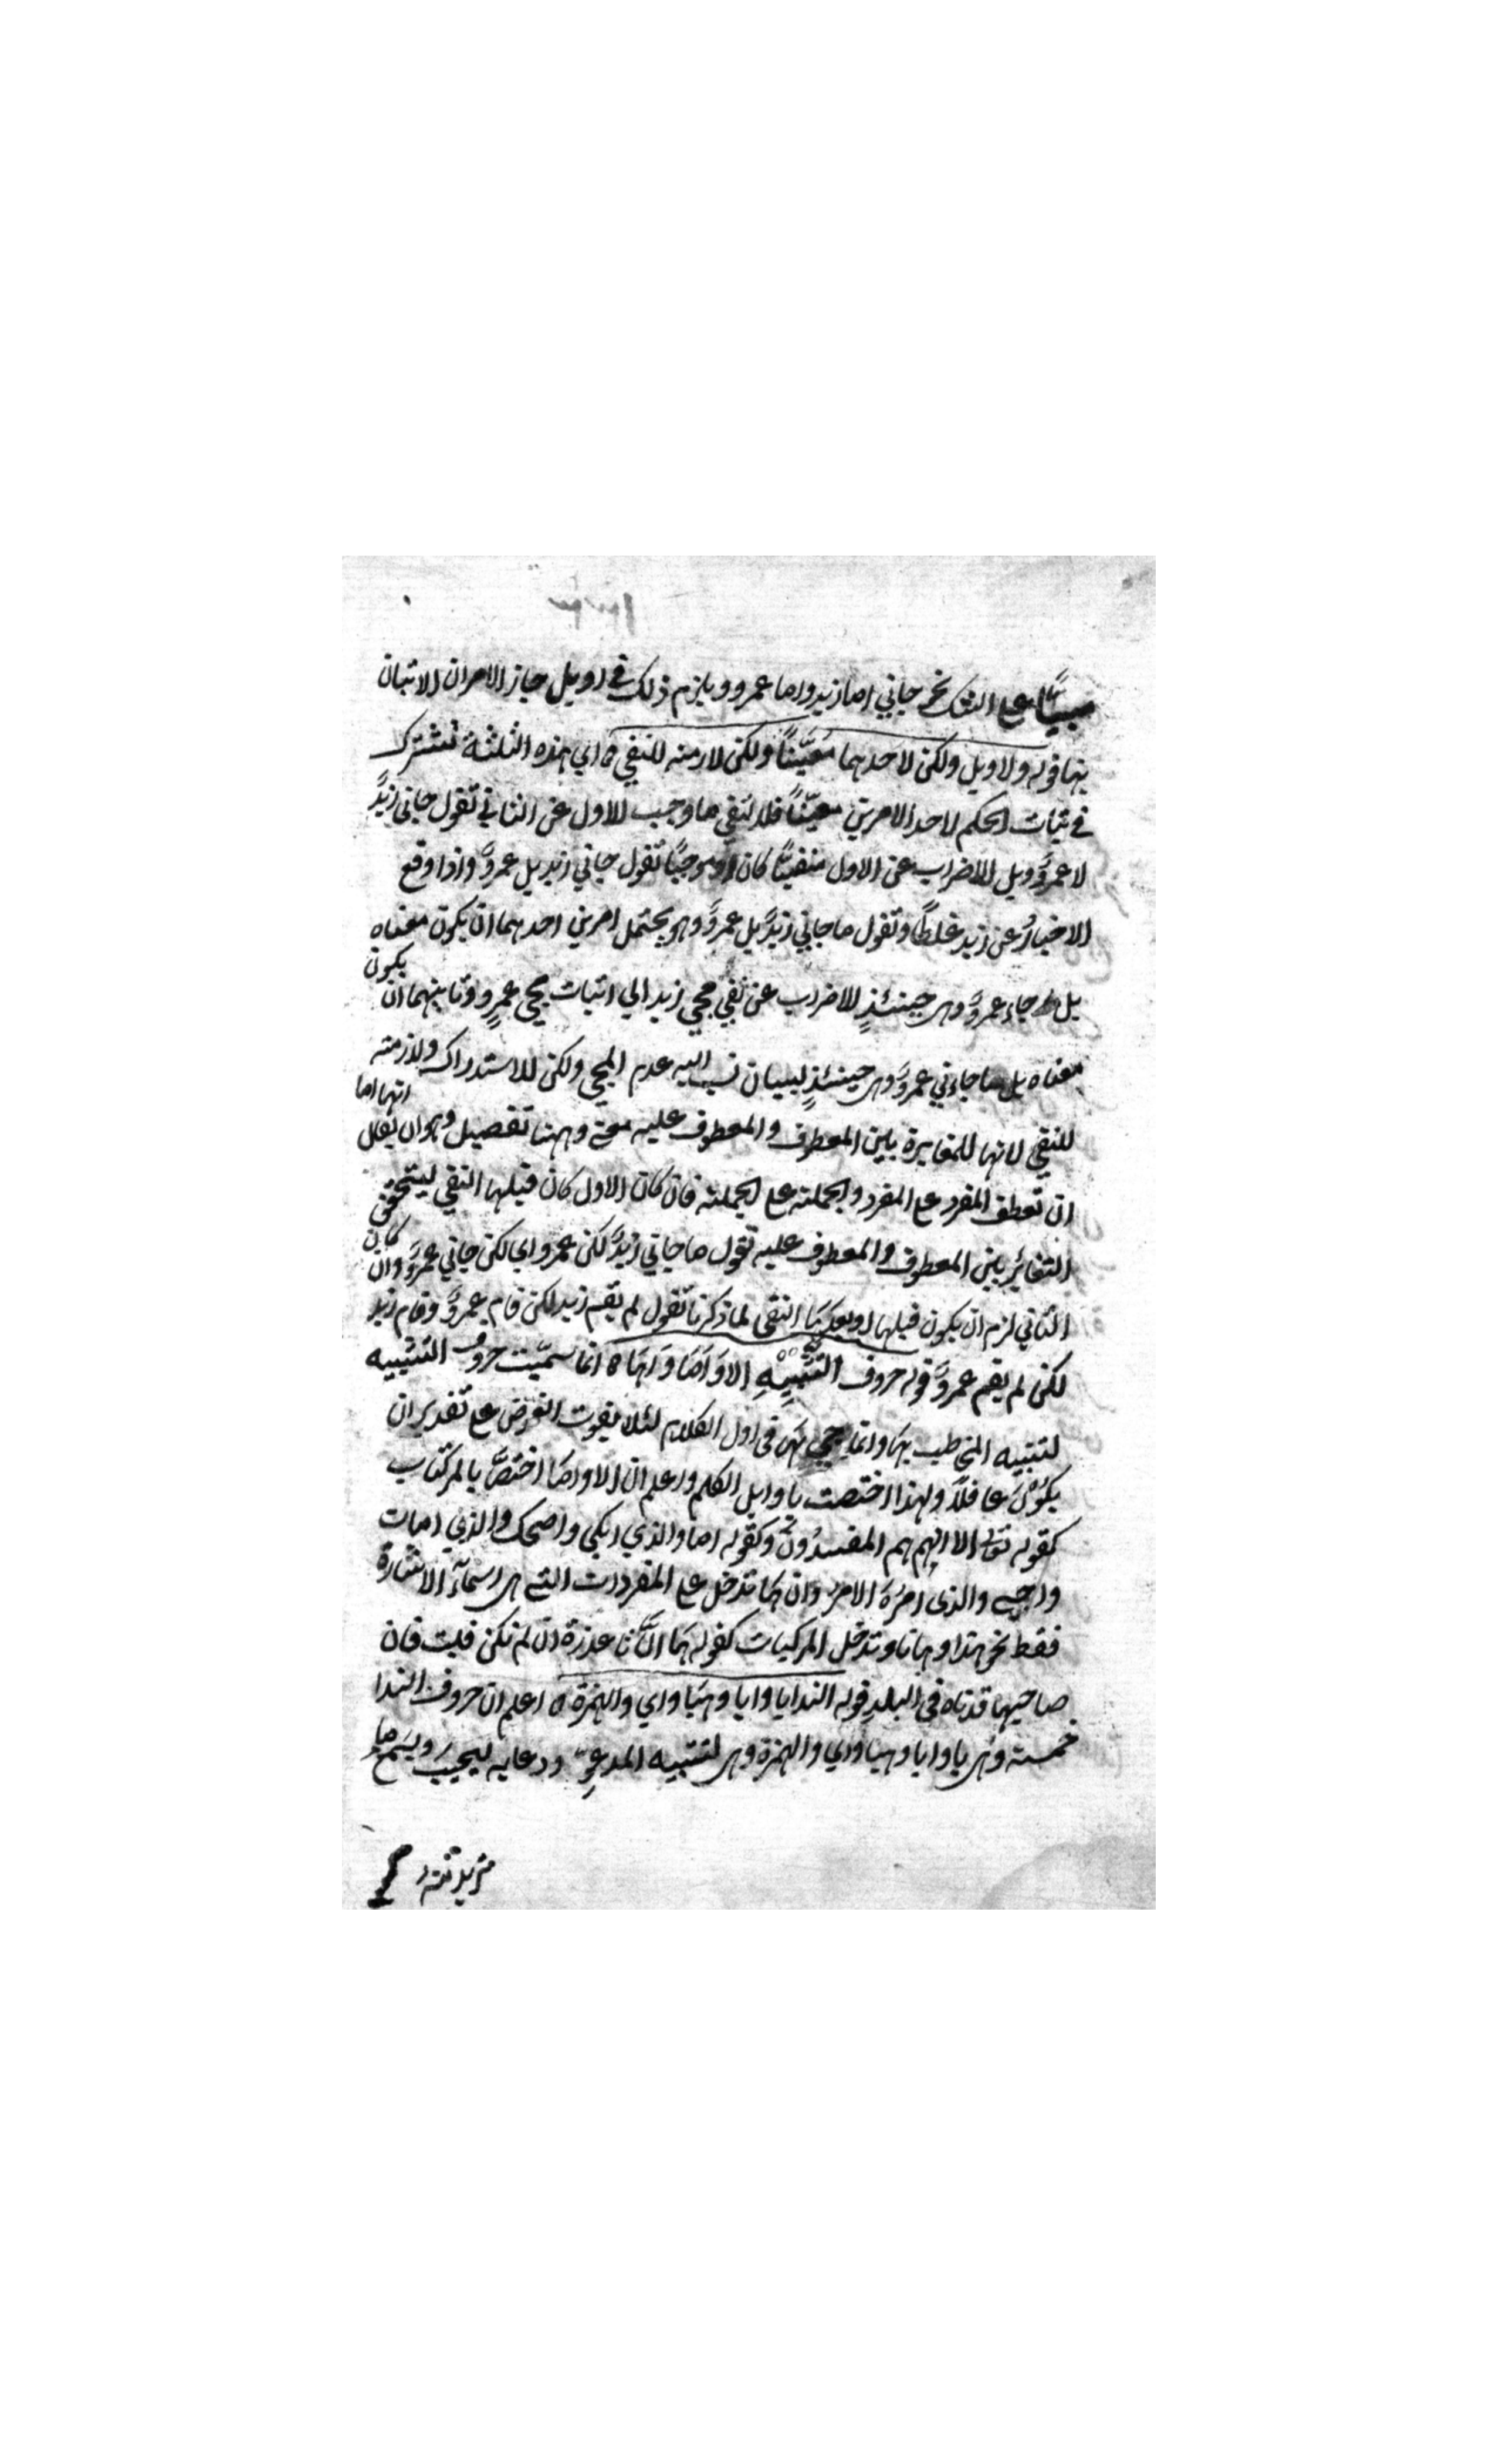 مبنيًا على الشك نحو جاني اما زيد واما عمرو ويلزم ذلك في او بل جاز الامران الاتيان
بها قوله ولا وبل ولكن لاحدهما معيّنًا ولكن لازمنه للنفي ه اي هذه الثلثة تشترك
في ثبات الحكم لاحد الامرين معيّنًا فلا لنفي ما وجب للاول عن الثاني تقول جاني زيدٌ
لا عمروٌ وبل للاضراب عن الاول منفيًّا كان او موجبًا تقول جاني زيد بل عمروٌ واذا وقع
الاخبارُ عن زيد غلطًا وتقول ما جاني زيدٌ بل عمروٌ وهو يحتمل امرين احدهما ان يكون معناه
بل جاء عمروٌ وهى حينئذٍ للاضراب عن نفي مجي زيد الي اثبات مجي عمرٍو وثانيهما ان يكون
معناه بل ما جاءني عمروٌ وهى حينئذٍ لبيان نسب اليه عدم المجي ولكن للاستدراك ولازمته
للنفي لانها للمغايرة بين المعطوف والمعطوف عليه معنى وههنا تفصيل وهو ان يقال انها اما
ان تعطف المفرد على المفرد والجملة على الجملة فان كان الاول كان قبلها النفي ليتحقق
التغائر بين المعطوف والمعطوف عليه تقول ما جاني زيدٌ لكن عمرو اي لكن جاني عمروٌ وان كان
الثاني لزم ان يكون قبلها او بعدها النفي لما ذكرنا تقول لم يقم زيد لكن قام عمروٌ وقام زيد
لكن لم يقم عمروٌ قوله حروف التَنْبِيْهِ الا وَاَمَا وَهَا ه انما سمّيت حروف التنبيه
لتنبيه المخاطب بها وانما يجي بها فى اول الكلام لئلا يفوت الغرض على تقدير ان
يكون غافلًا ولهذا اختصت باوايل الكلم واعلم ان الا واما اختصَّ بالمركبات
كقوله تعالى الا انهم هم المفسدُونَ وكقوله اما والذي ابكي واضحك والذي امات
واحيى والذى امرُه الامرُ وان ها تدخل على المفردات التي هى اسمآء الاشارة
فقط نحو هذا وهاتا وتدخل المركبات كقوله هَا انَّ تا عذرة ان لم تكن قبلت فان
صاحبها قد تاه فى البلدِ قوله الندا يا وايا وهَيَا واي والهمزة ه اعلم ان حروف الندا
خمسة وهى يا وايا وهيا واي والهمزة وهى لتنبيه المدعوّ ودعايه ليجيبَ ويسمع ما